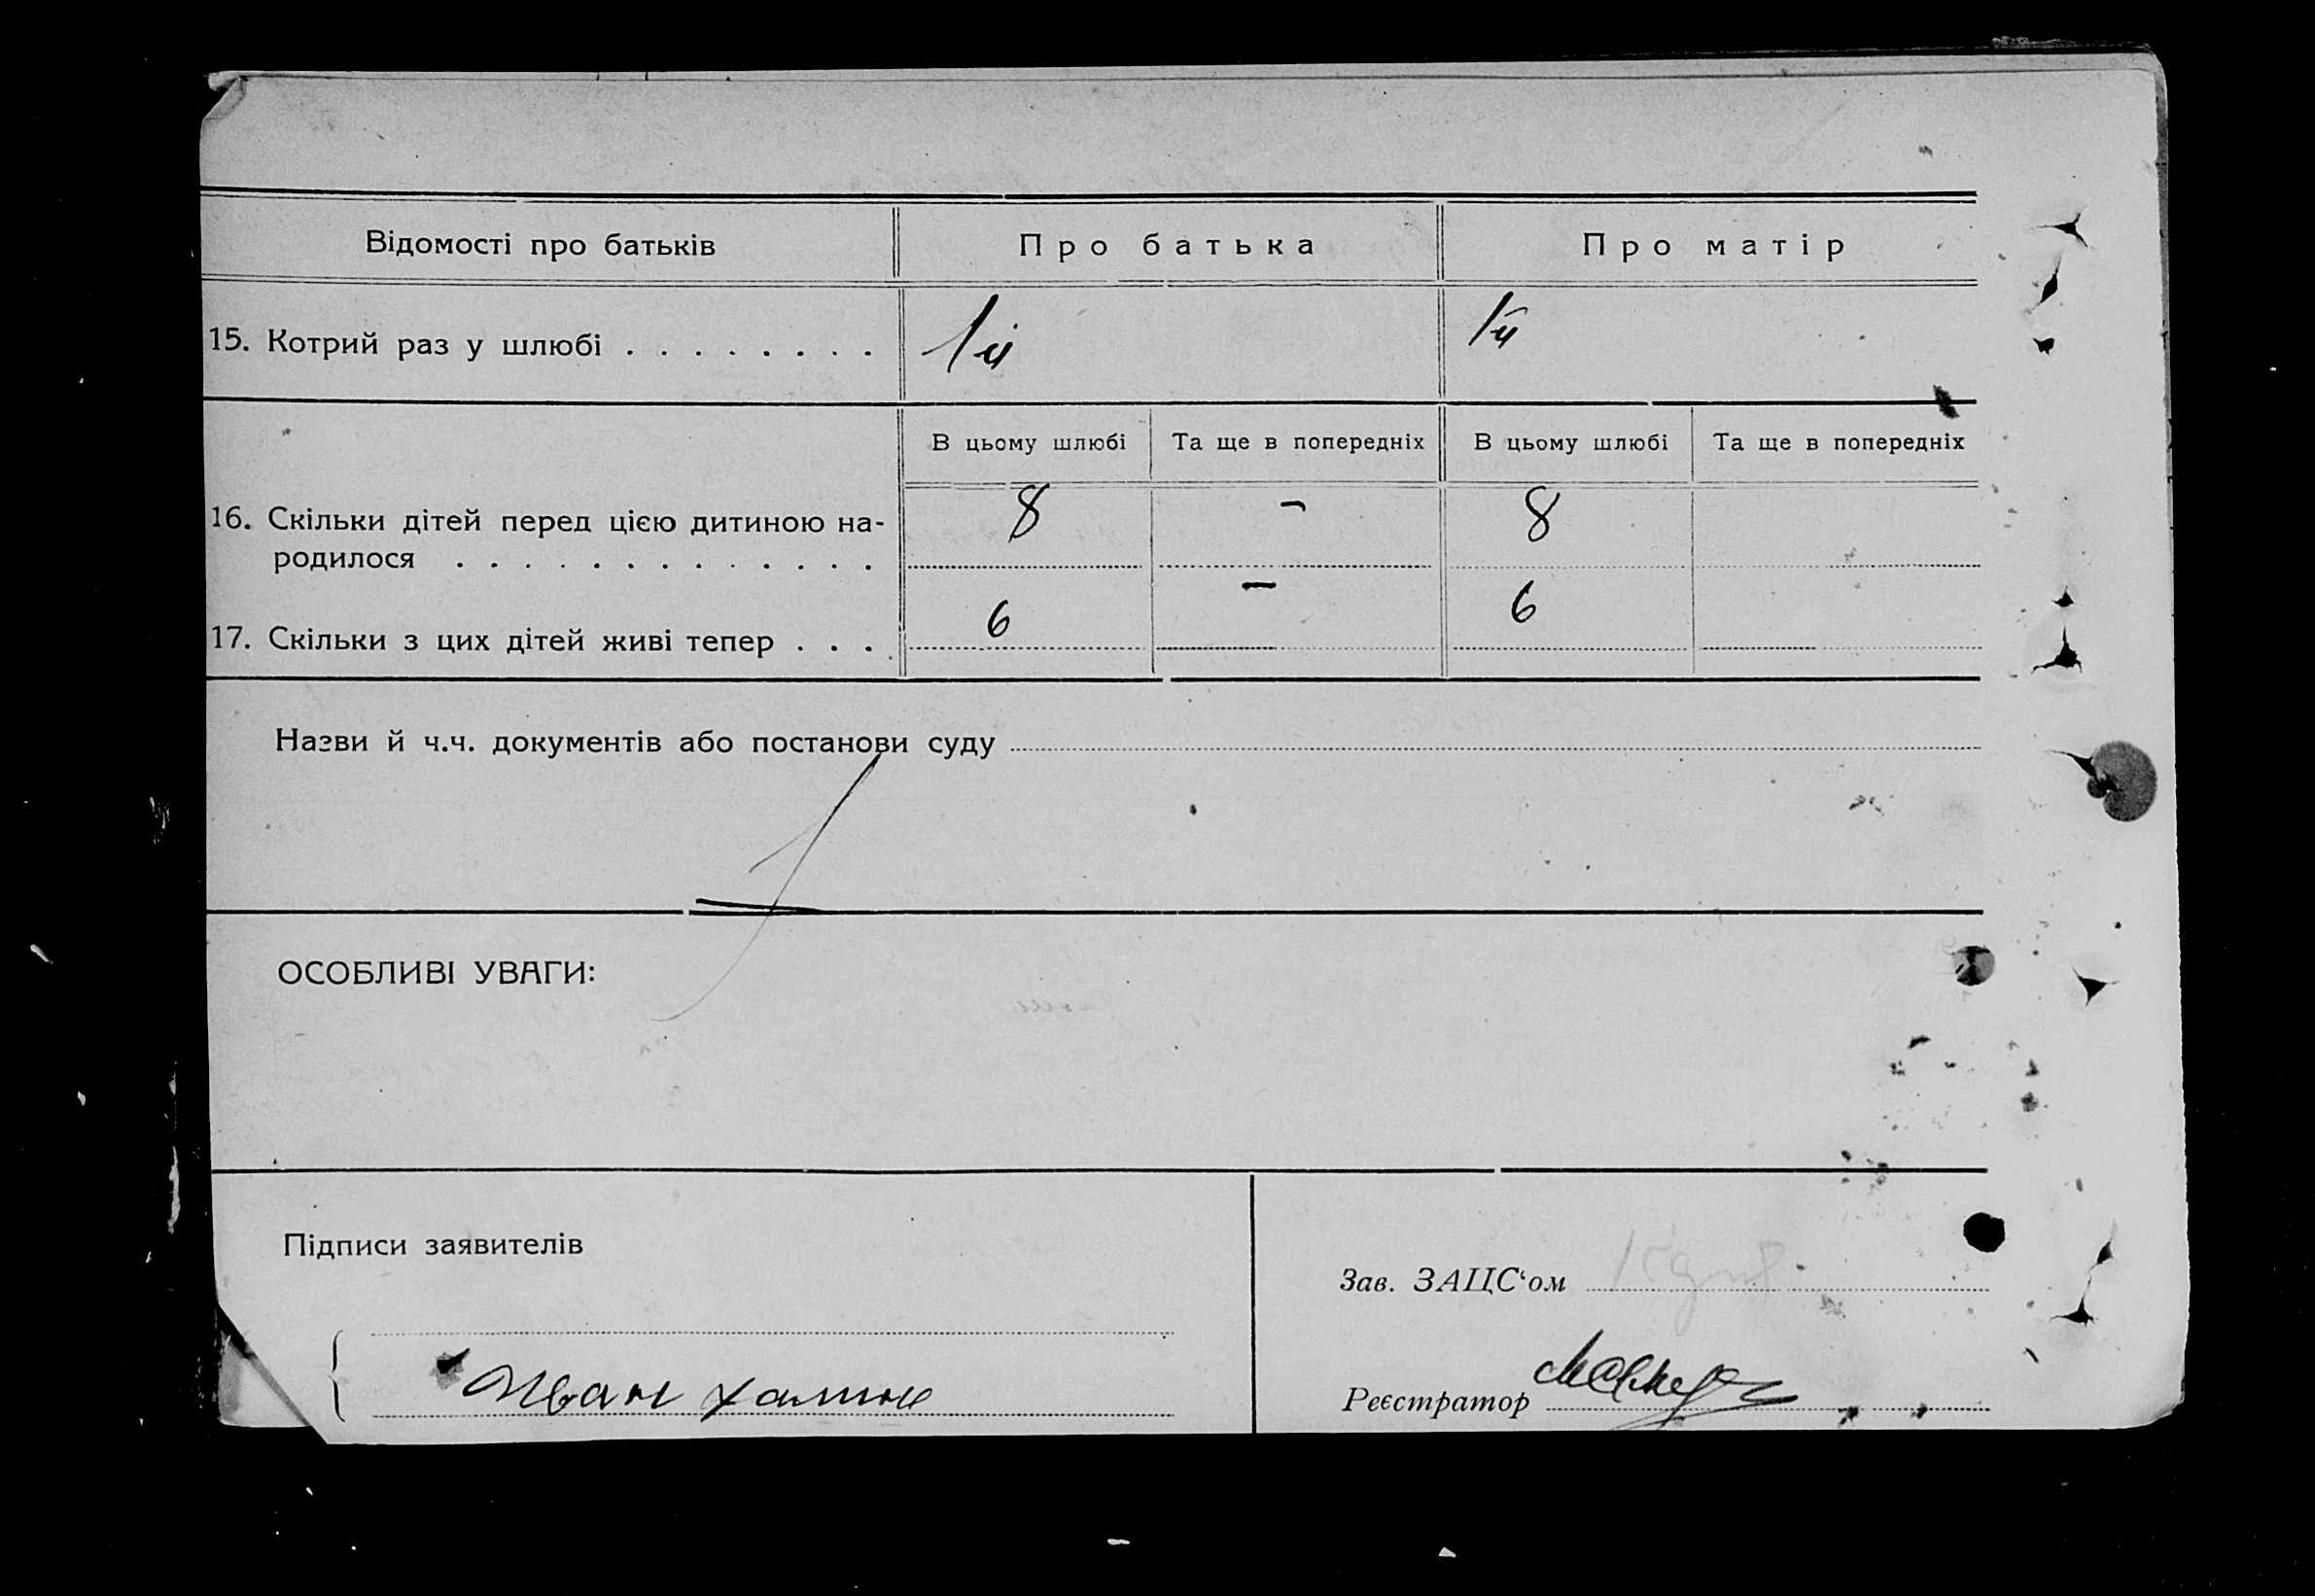 Відомості про батьків Про батька Про матір
15. Котрий раз у шлюбі . . . . . . . . 1й 1й
В цьому шлюбі Та ще в попередніх В цьому шлюбі Та ще в попередніх
16. Скільки дітей перед цією дитиною на- 8 – 8
родилося . . . . . . . . . . . . .
17. Скільки з цих дітей живі тепер . . . 6 – 6
Назви й ч.ч. документів або постанови суду
ОСОБЛИВІ УВАГИ:
Підписи заявителів
Зав. ЗАЦС‘ом
Иван
Реєстратор